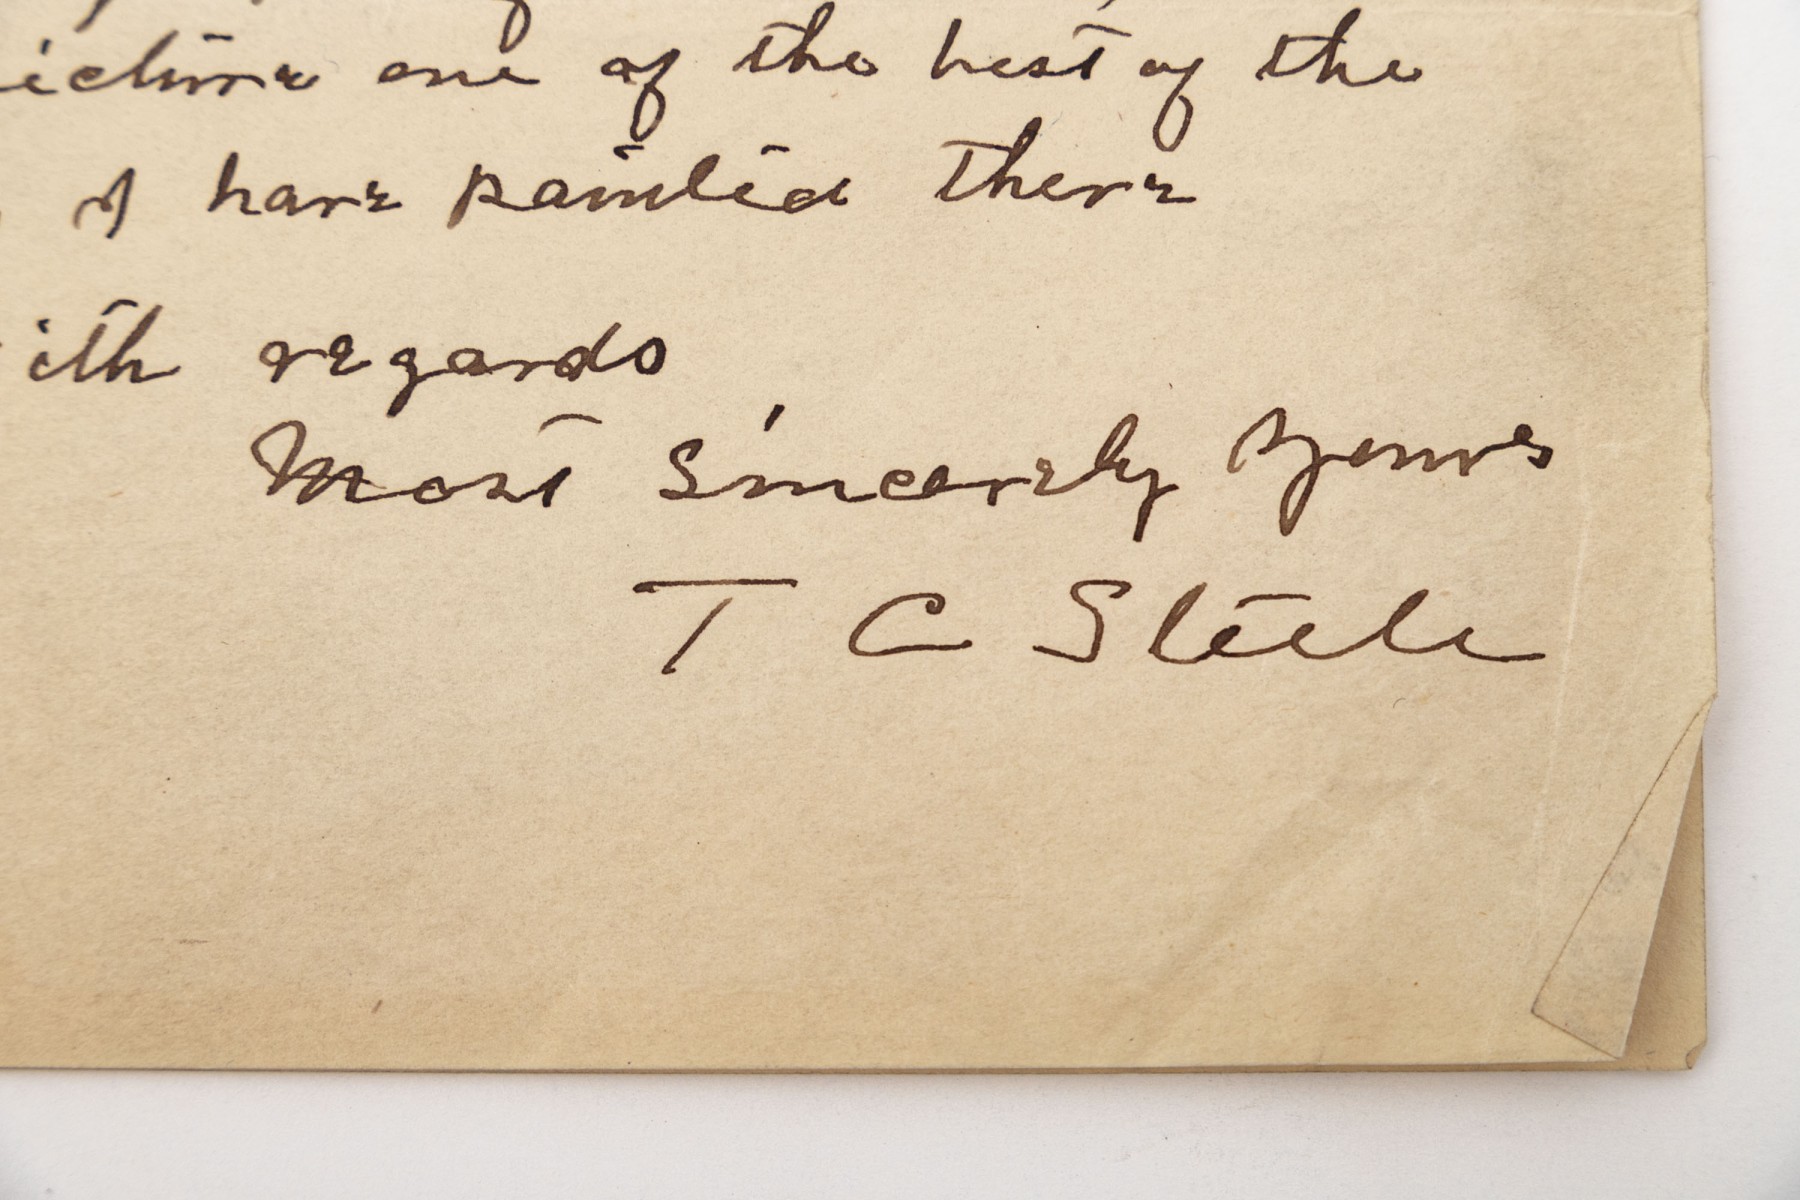 icture one of the best of the
I have painted there
ith regards
Most Sincerely Yours
T C Steele